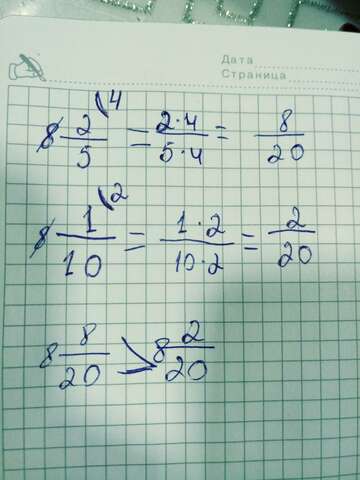 Дата
Страница
8 2/5 \4 = 2·4/5·4 = 8/20
8 1/10 \2 = 1·2/10·2 = 2/20
8 8/20 > 8 2/20